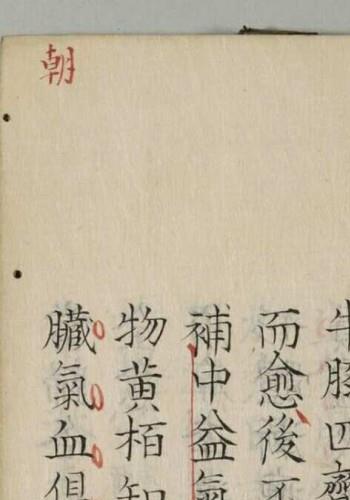 牛膝四齊
而愈後不
補中益氣
物黃栢知
臟氣血俱
朝